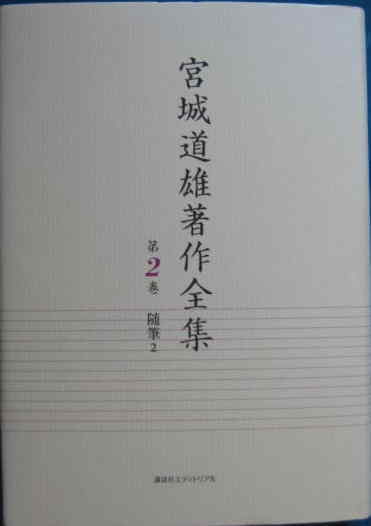 宮城道雄著作全集
第2巻 随筆2
講談社エディトリアル